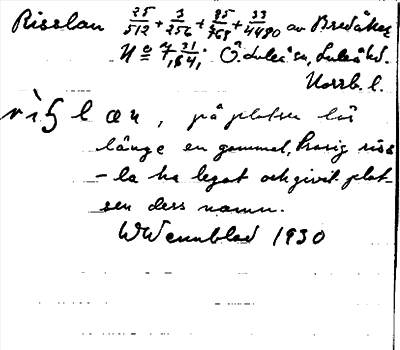 Risslan 25/512 + 3/256 + 85/768 + 33/4480 av Bredåker
N:o 7, 21/1641, Ö. Luleå sn, Luleå hd.
Norrb. l.
rìslan, på platsen lär
länge en gammal, trasig riss-
-la ha legat och givit plat-
sen dess namn.
WWennblad 1930